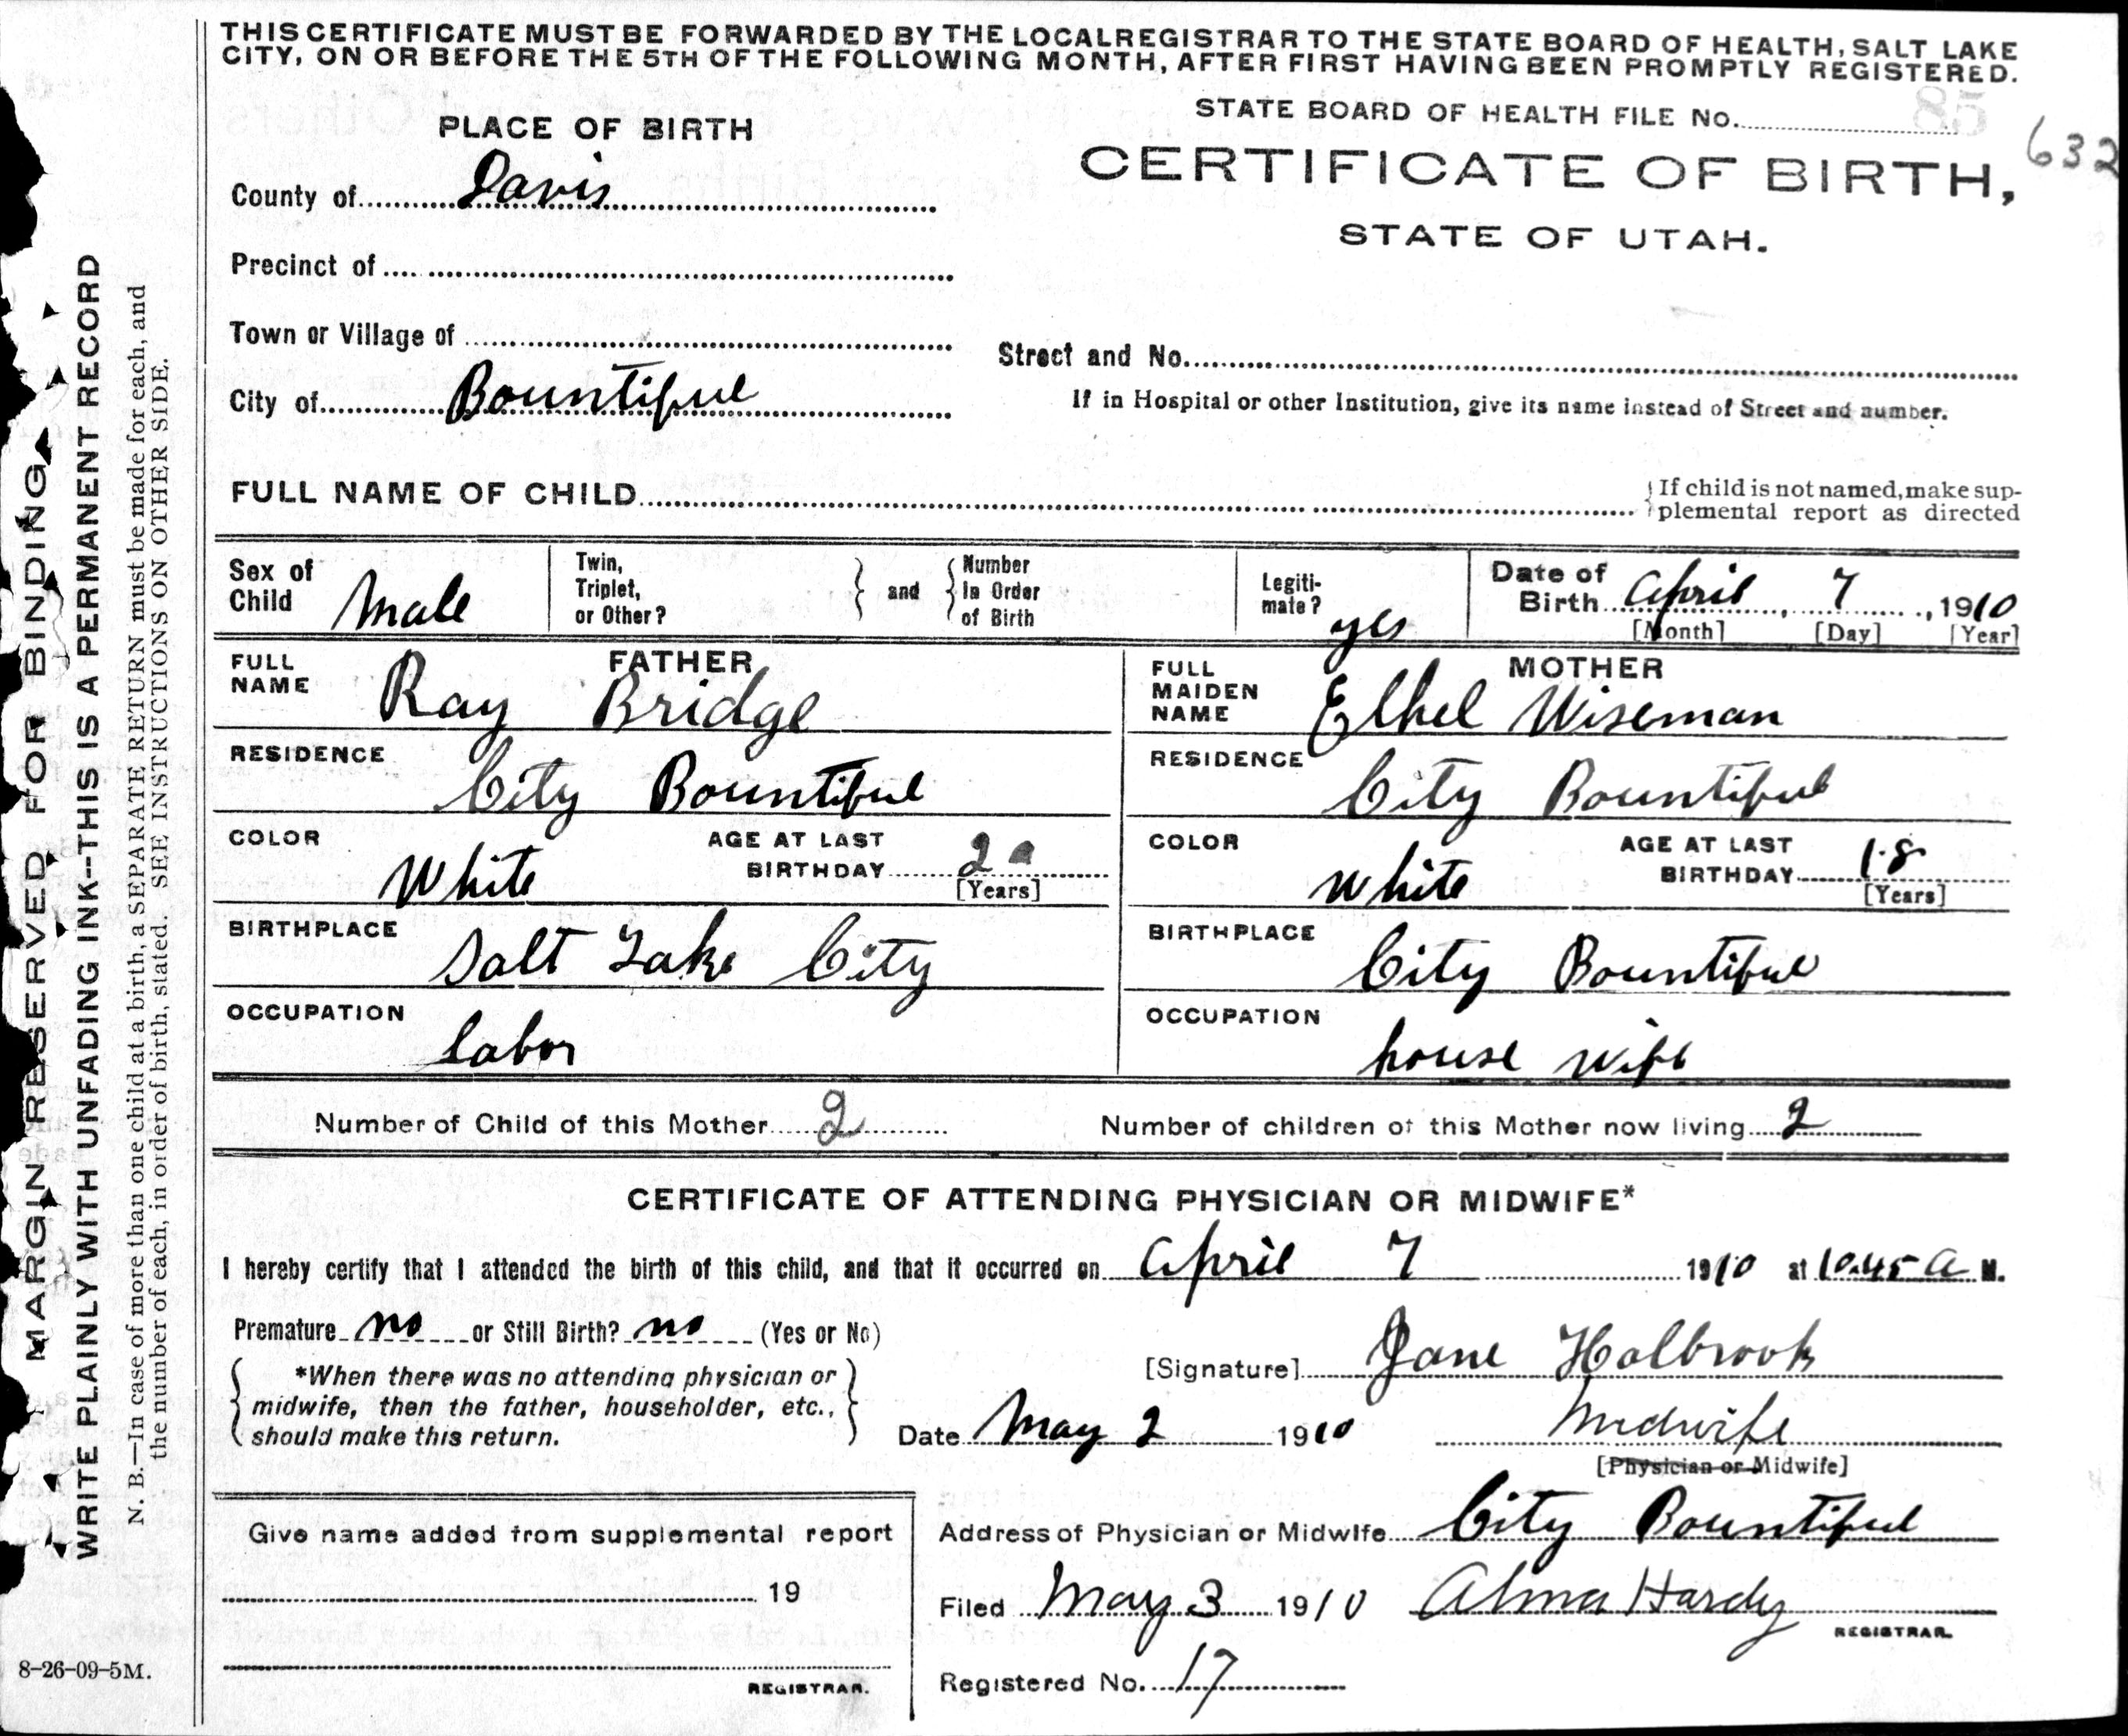 THIS CERTIFICATE MUST BE FORWARDED BY THE LOCAL REGISTRAR TO THE STATE BOARD OF HEALTH, SALT LAKE
CITY, ON OR BEFORE THE 5TH OF THE FOLLOWING MONTH, AFTER FIRST HAVING BEEN PROMPTLY REGISTERED.
STATE BOARD OF HEALTH FILE No. 85
632
PLACE OF BIRTH
CERTIFICATE OF BIRTH,
STATE OF UTAH.
County of Davis
Precinct of
Town or Village of
Street and No.
City of Bountiful
If in Hospital or other Institution, give its name instead of Street and number.
FULL NAME OF CHILD
If child is not named, make sup-
plemental report as directed
Sex of
Child Male
Twin,
Triplet,
or Other?
and
Number
In Order
of Birth
Legiti-
mate? yes
Date of
Birth April 7, 1910
[Month] [Day] [Year]
FATHER
FULL
NAME Ray Bridge
RESIDENCE City Bountiful
COLOR White
AGE AT LAST
BIRTHDAY 2
[Years]
BIRTHPLACE Salt Lake City
OCCUPATION labor
MOTHER
FULL
MAIDEN
NAME Ethel Wiseman
RESIDENCE City Bountiful
COLOR White
AGE AT LAST
BIRTHDAY 18
[Years]
BIRTHPLACE City Bountiful
OCCUPATION house wife
Number of Child of this Mother 2 Number of children of this Mother now living 2
CERTIFICATE OF ATTENDING PHYSICIAN OR MIDWIFE*
I hereby certify that I attended the birth of this child, and that it occurred on April 7 1910 at 10.45 a M.
Premature no or Still Birth? no (Yes or No)
*When there was no attending physician or
midwife, then the father, householder, etc.,
should make this return.
[Signature] Jane Holbrook
Date May 2 1910 Midwife
[Physician or Midwife]
Give name added from supplemental report
19
REGISTRAR.
Address of Physician or Midwife City Bountiful
Filed May 3 1910 Alma Hardy
REGISTRAR.
Registered No. 17
MARGIN RESERVED FOR BINDING
WRITE PLAINLY WITH UNFADING INK--THIS IS A PERMANENT RECORD
N. B.—In case of more than one child at a birth, a SEPARATE RETURN must be made for each, and
the number of each, in order of birth, stated. SEE INSTRUCTIONS ON OTHER SIDE.
8-26-09-5M.